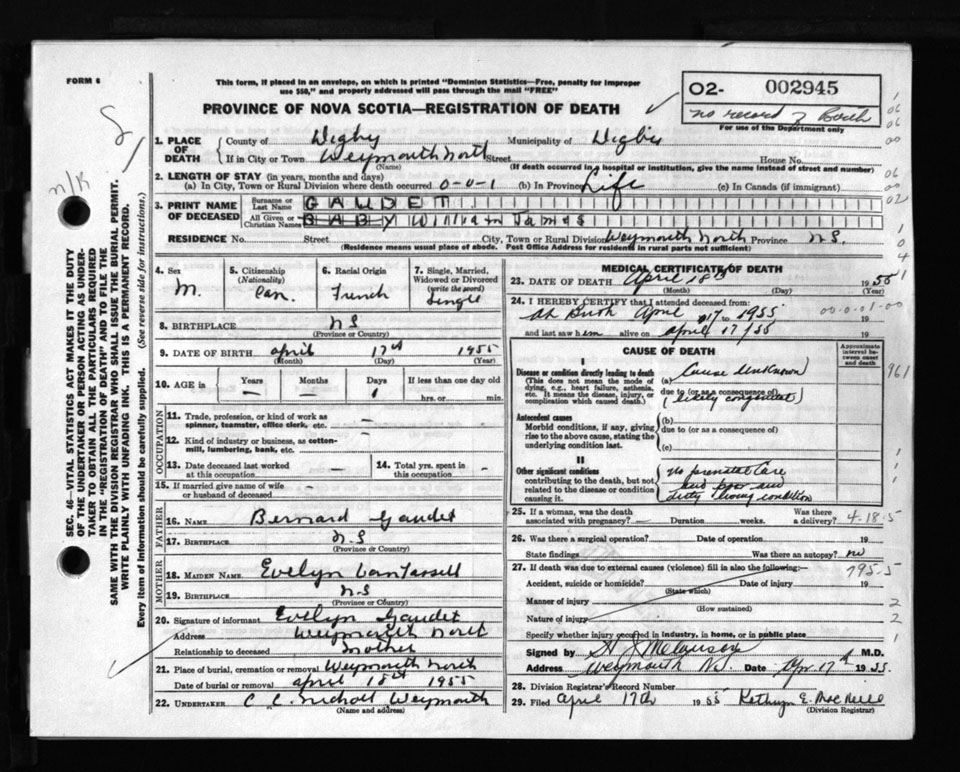 FORM 6
This form, if placed in an envelope, on which is printed "Dominion Statistics—Free, penalty for improper
use $50," and properly addressed will pass through the mail "FREE"
PROVINCE OF NOVA SCOTIA—REGISTRATION OF DEATH
O2- 002945
no record of Birth
For use of the Department only
n/R
SEC. 46—VITAL STATISTICS ACT MAKES IT THE DUTY
OF THE UNDERTAKER OR PERSON ACTING AS UNDER-
TAKER TO OBTAIN ALL THE PARTICULARS REQUIRED
IN THE "REGISTRATION OF DEATH" AND TO FILE THE
SAME WITH THE DIVISION REGISTRAR WHO SHALL ISSUE THE BURIAL PERMIT.
WRITE PLAINLY WITH UNFADING INK. THIS IS A PERMANENT RECORD.
Every item of information should be carefully supplied. (See reverse side for instructions.)
1. PLACE OF DEATH County of Digby Municipality of Digby
If in City or Town Weymouth North Street House No.
(Name) (If death occurred in a hospital or institution, give the name instead of street and number)
2. LENGTH OF STAY (in years, months and days)
(a) In City, Town or Rural Division where death occurred 0-0-1 (b) In Province Life (c) In Canada (if immigrant)
3. PRINT NAME OF DECEASED Surname or Last Name GAUDET
All Given or Christian Names BABY William James
RESIDENCE No. Street City, Town or Rural Division Weymouth North Province N.S.
(Residence means usual place of abode. Post Office Address for residents in rural parts not sufficient)
4. Sex M. 5. Citizenship (Nationality) Can. 6. Racial Origin French 7. Single, Married, Widowed or Divorced (write the word) Single
8. BIRTHPLACE N S
(Province or Country)
9. DATE OF BIRTH April 17th 1955
(Month) (Day) (Year)
10. AGE in Years — Months — Days 1 If less than one day old hrs. or min.
OCCUPATION
11. Trade, profession, or kind of work as spinner, teamster, office clerk, etc. —
12. Kind of industry or business, as cotton-mill, lumbering, bank, etc. —
13. Date deceased last worked at this occupation — 14. Total yrs. spent in this occupation —
15. If married give name of wife or husband of deceased —
FATHER
16. NAME Bernard Gaudet
17. BIRTHPLACE N.S
(Province or Country)
MOTHER
18. MAIDEN NAME Evelyn VanTassell
19. BIRTHPLACE N S
(Province or Country)
20. Signature of informant Evelyn Gaudet
Address Weymouth North
Relationship to deceased Mother
21. Place of burial, cremation or removal Weymouth North
Date of burial or removal April 18th 1955
22. UNDERTAKER C. C. Nicholl Weymouth
(Name and address)
MEDICAL CERTIFICATE OF DEATH
23. DATE OF DEATH April 18th 1955
(Month) (Day) (Year)
24. I HEREBY CERTIFY that I attended deceased from:
At Birth April 17 to 1955 19
and last saw him alive on April 17/55 19
00-0-01-00
CAUSE OF DEATH
Approximate interval between onset and death
I
Disease or condition directly leading to death
(This does not mean the mode of dying, e.g., heart failure, asthenia, etc. It means the disease, injury, or complication which caused death.)
(a) Cause Unknown
due to (or as a consequence of)
(likely congenital)
Antecedent causes
Morbid conditions, if any, giving rise to the above cause, stating the underlying condition last.
(b)
due to (or as a consequence of)
(c)
II
Other significant conditions
contributing to the death, but not related to the disease or condition causing it.
no prenatal care
and poor and
dirty living condition
25. If a woman, was the death associated with pregnancy? — Duration weeks. Was there a delivery?
4-18-5
26. Was there a surgical operation? Date of operation. 19
State findings Was there an autopsy? no
27. If death was due to external causes (violence) fill in also the following:—
795.5
Accident, suicide or homicide? Date of injury 19
(State which)
Manner of injury
(How sustained)
Nature of injury
Specify whether injury occurred in industry, in home, or in public place
Signed by H J Melanson M.D.
Address Weymouth N.S. Date Apr. 17th 1955.
28. Division Registrar's Record Number
29. Filed April 17th 1955 Kathryn E. MacNeill
(Division Registrar)
1
06
06
00
06
00
02
1
0
4
1
961
1
1
2
2
1